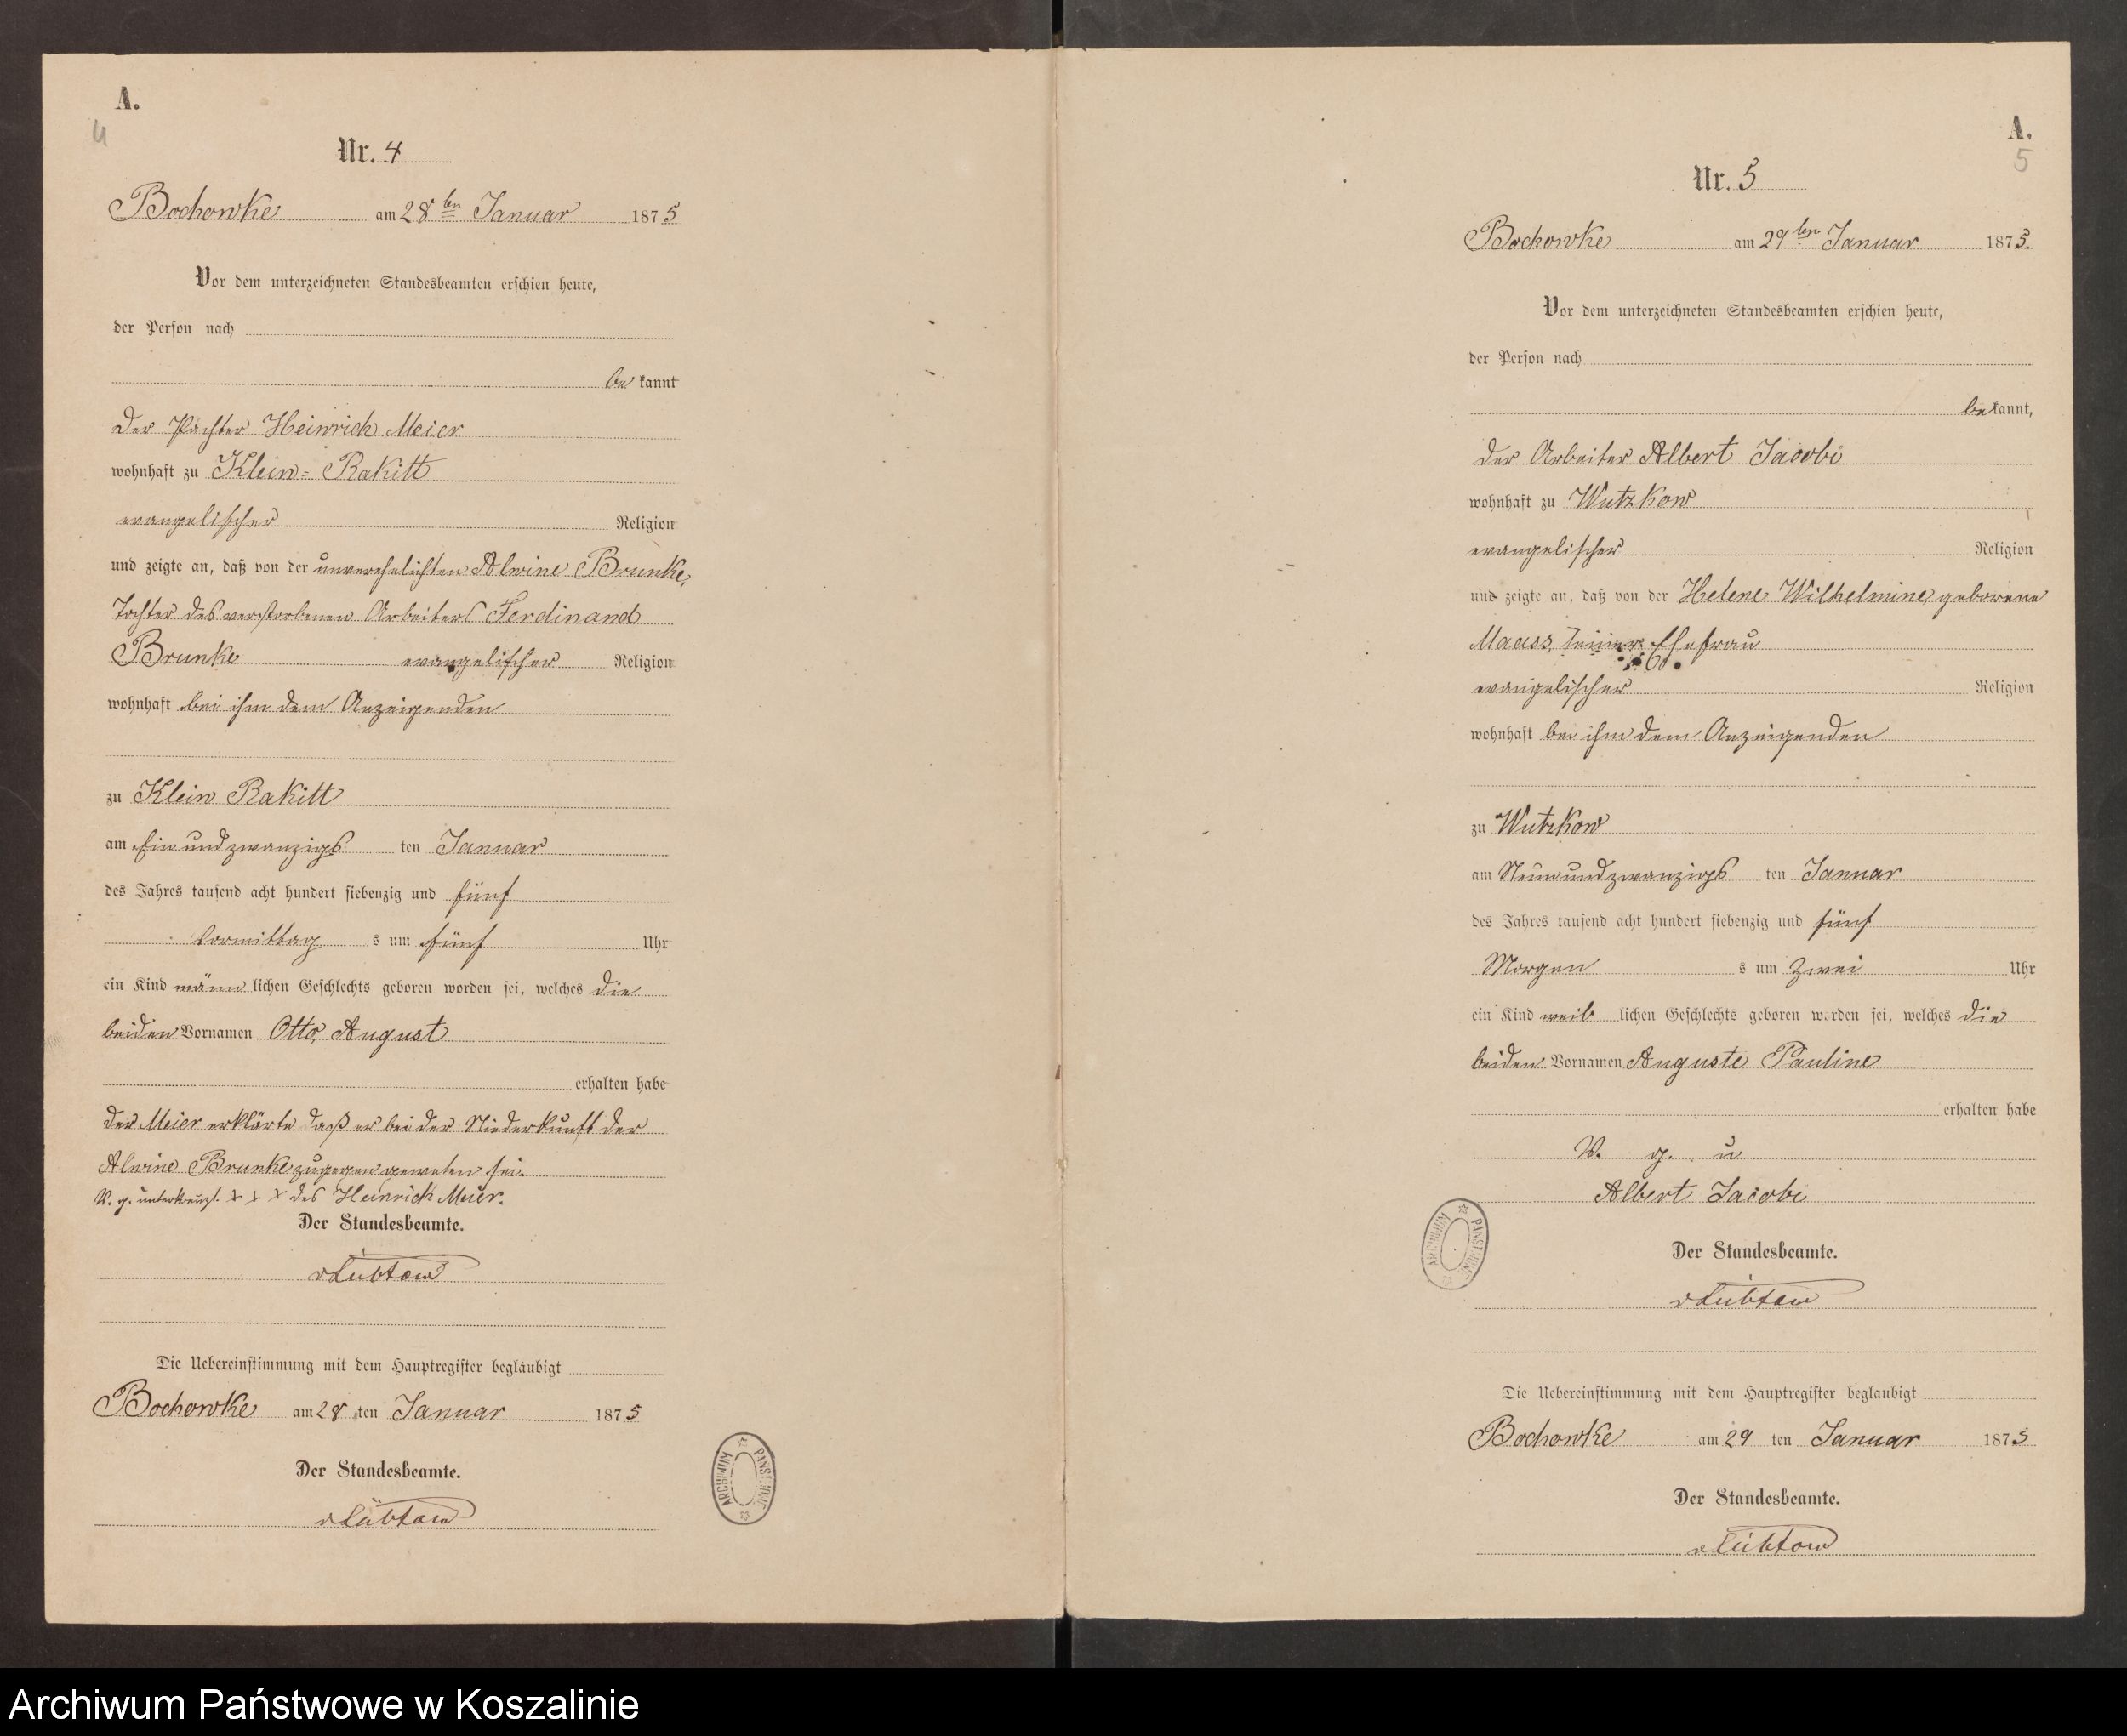 A.
4
Nr. 4
Bochowke am 28ten Januar 1875
Vor dem unterzeichneten Standesbeamten erschien heute,
der Person nach
bekannt
der Pächter Heinrich Meier
wohnhaft zu Klein-Rakitt
evangelischer Religion
und zeigte an, daß von der unverehelichten Alwine Brunke,
Tochter des verstorbenen Arbeiters Ferdinand
Brunke evangelischer Religion
wohnhaft bei ihm dem Anzeigenden
zu Klein Rakitt
am Ein und zwanzigs ten Januar
des Jahres tausend acht hundert siebenzig und fünf
Vormittag s um fünf Uhr
ein Kind männ lichen Geschlechts geboren worden sei, welches die
beiden Vornamen Otto, August
erhalten habe
der Meier erklärte daß er bei der Niederkunft der
Alwine Brunke zugegen gewesen sei.
V. g. unterkreuzt. + + + des Heinrich Meier.
Der Standesbeamte.
v Lübtow
Die Uebereinstimmung mit dem Hauptregister beglaubigt
Bochowke am 28 ten Januar 1875
Der Standesbeamte.
v Lübtow
ARCHIWUM PAŃSTWOWE
A.
5
Nr. 5
Bochowke am 29ten Januar 1875.
Vor dem unterzeichneten Standesbeamten erschien heute,
der Person nach
bekannt,
der Arbeiter Albert Jacobi
wohnhaft zu Wutzkow
evangelischer Religion
und zeigte an, daß von der Helene Wilhelmine geborene
Maass, seiner Ehefrau
evangelischer Religion
wohnhaft bei ihm dem Anzeigenden
zu Wutzkow
am Neun und zwanzigs ten Januar
des Jahres tausend acht hundert siebenzig und fünf
Morgen s um zwei Uhr
ein Kind weib lichen Geschlechts geboren worden sei, welches die
beiden Vornamen Auguste Pauline
erhalten habe
V. g. u
Albert Jacobi
ARCHIWUM PAŃSTWOWE
Der Standesbeamte.
v Lübtow
Die Uebereinstimmung mit dem Hauptregister beglaubigt
Bochowke am 29 ten Januar 1875
Der Standesbeamte.
v Lübtow
Archiwum Państwowe w Koszalinie